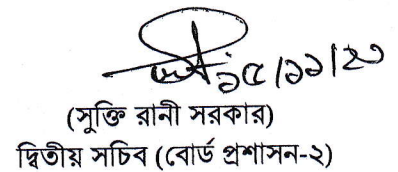 ১৫/১১/২০
(সুক্তি রানী সরকার)
দ্বিতীয় সচিব (বোর্ড প্রশাসন-২)